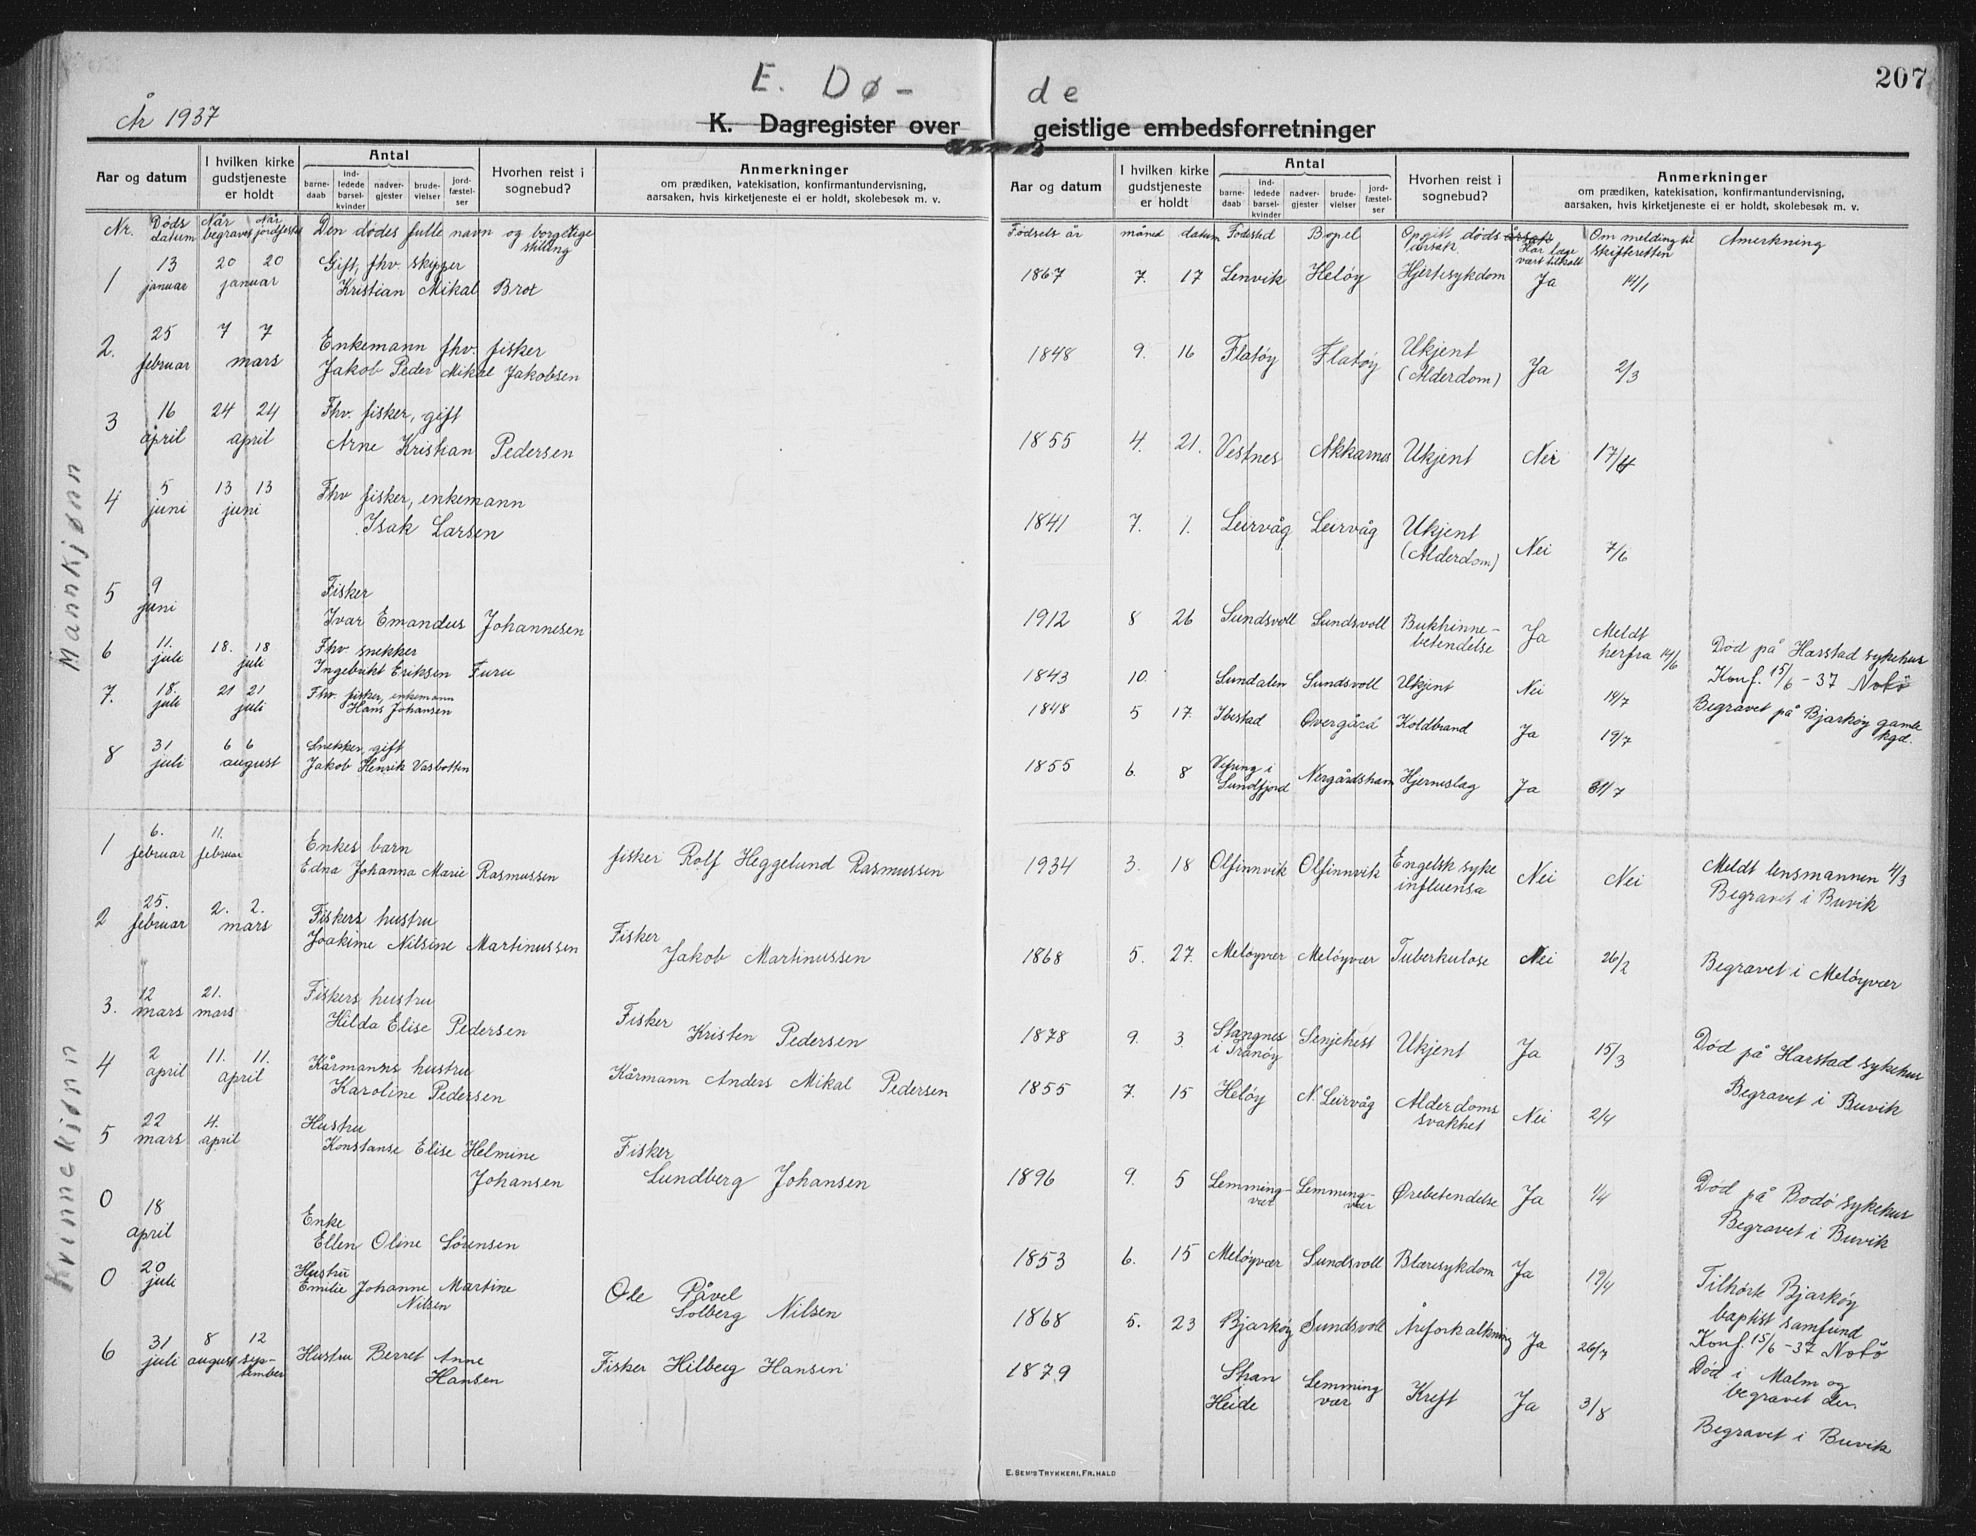 E. Dø- de
207
År 1937
K. Dagregister over geistlige embedsforretninger
Aar og datum
I hvilken kirke gudstjeneste er holdt
Antal
barne-daab
ind-ledede barsel-kvinder
nadver-gjester
brude-vielser
jord-fæstel-ser
Hvorhen reist i sognebud?
Anmerkninger
om prædiken, katekisation, konfirmantundervisning,
aarsaken, hvis kirketjeneste ei er holdt, skolebesøk m. v.
Aar og datum
I hvilken kirke gudstjeneste er holdt
Antal
barne-daab
ind-ledede barsel-kvinder
nadver-gjester
brude-vielser
jord-fæstel-ser
Hvorhen reist i sognebud?
Anmerkninger
om prædiken, katekisation, konfirmantundervisning,
aarsaken, hvis kirketjeneste ei er holdt, skolebesøk m. v.
Nr. Døds datum Når begravet Når jordfestet Den dødes fulle navn og borgerlige stilling
Fødsels år måned datum Fødested Bopel Opgitt dødsårsak Har læge vært tilkalt Om melding til skifteretten Anmerkning
Mannkjønn
1 13 januar 20 20 januar Gift, fhv. skipper
Kristian Mikal Brox
1867 7. 17 Lenvik Heløy Hjertesykdom Ja 14/1
2. 25 februar 7 7 mars Enkemann fhv. fisker
Jakob Peder Mikal Jakobsen
1848 9. 16 Flatøy Flatøy Ukjent (Alderdom) Ja 2/3
3 16 april 24 24 april Fhv. fisker, gift
Arne Kristian Pedersen
1855 4. 21. Vestnes Akkarnes Ukjent Nei 17/4
4 5 juni 13 13 juni Fhv fisker, enkemann
Isak Larsen
1841 7. 1. Leirvåg Leirvåg Ukjent (Alderdom) Nei 7/6
5 9 juni Fisker
Ivar Emandus Johannesen
1912 8 26 Sundsvoll Sundsvoll Bukhinne-betendelse Ja Meldt herfra 14/6 Død på Harstad sykehus
Konf. 15/6-37 Notø
6 11. juli 18. 18 juli Fhv. snekker
Ingebrikt Eriksen Furu
1843 10. Sundalen Sundsvoll Ukjent Nei 14/7
7. 18. juli 21 21 juli Fhv. fisker, enkemann
Hans Johansen
1848 5 17. Ibestad Øvergåsa Koldbrand Ja 19/7 Begravet på Bjarkøy gamle kgd.
8 31 juli 6 6 august Snekker, gift
Jakob Henrik Vasbotten
1855 6. 8 Sundfjord Nergårdshamn Hjerneslag Ja 31/7
Kvinnekjønn
1 6. februar 11. februar Enkes barn
Edna Johanna Marie Rasmussen fisker Rolf Heggelund Rasmussen
1934 3. 18 Olfinnvik Olfinnvik Engelsk syke influensa Nei Nei Meldt lensmannen 4/3
Begravet i Buvik
2 25. februar 2. 2. mars Fiskers hustru
Joakime Nilsine Martinussen Fisker Jakob Martinussen
1868 5. 27. Meløyvær Meløyvær Tuberkulose Nei 26/2 Begravet i Meløyvær
3. 12 mars 21. mars Fiskers hustru
Hilda Elise Pedersen Fisker Kristen Pedersen
1878 9. 3 Stangnes i Tranøy Senjehest Ukjent Ja 15/3 Død på Harstad sykehus
4 2 april 11. 11. april Kårmanns hustru
Karoline Pedersen Kårmann Anders Mikal Pedersen
1855 7. 15 Heløy N. Leirvåg Alderdoms svakhet Nei 2/4 Begravet i Buvik
5 22 mars 4. april Hustru
Konstanse Elise Helmine Johansen Fisker Lundberg Johansen
1896 9. 5 Lemming-vær Lemming-vær Ørebetendelse Ja 1/4 Død på Bodø sykehus
Begravet i Buvik
0 18 april Enke
Ellen Oline Sørensen
1853 6. 15 Meløyvær Sundsvoll Blæresykdom Ja 19/4 Tilhørte Bjarkøy baptist samfund
Konf. 15/6-37 Notø
0 20 juli Hustru
Emilie Johanne Martine Nilsen Ole Påvel Solberg Nilsen
1868 5. 23 Bjarkøy Sundsvoll Åreforkalkning Ja 26/7 Død i Malm og begravet der.
6 31 juli 8 august 12 september Hustru Berret Anne Hansen Fisker Hilberg Hansen
1879 Stran i Heide Lemming vær Kreft Ja 3/8 Begravet i Buvik
E. SEM'S TRYKKERI, FR. HALD